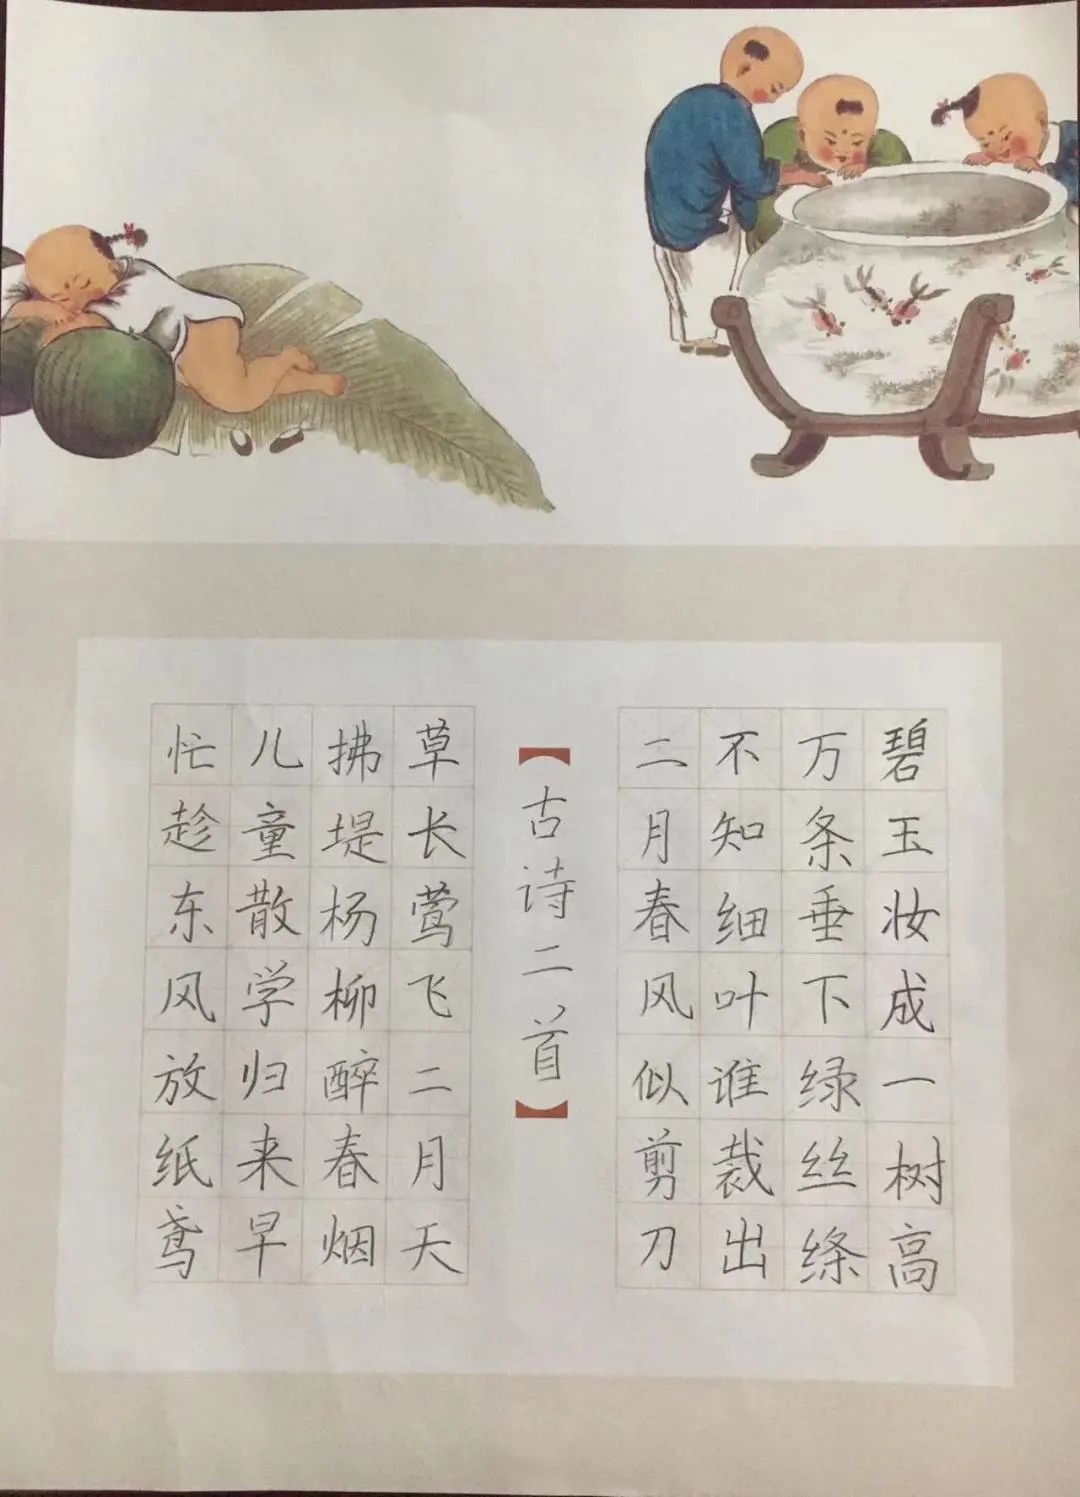 碧玉妆成一树高
万条垂下绿丝绦
不知细叶谁裁出
二月春风似剪刀
【古诗二首】
草长莺飞二月天
拂堤杨柳醉春烟
儿童散学归来早
忙趁东风放纸鸢